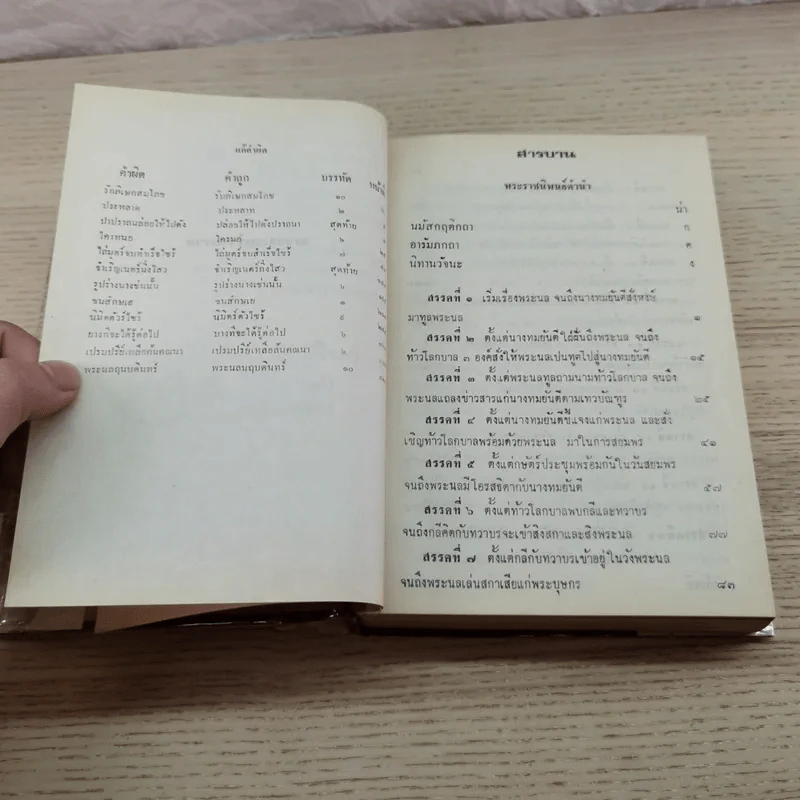 แก้คำผิด
คำผิด คำถูก บรรทัด
รักพิเษกสมโภช รับพิเษกสมโภช ๑๐
ประหลาด ประหลาท ๒
ปล่อยให้ไปดังปรารถนา สุดท้าย
ใครหนย ใครมก ๖
ไถ่มูตร์จบสำเร็จไซร้ ๗
ชำเริญเนตร์นิ่งไสว ชำเริญเนตร์กิ่งไสว สุดท้าย
รูปร่างนางเช่นนั้น รูปร่างนางเช่นนั้น ๖
ขนสักษเส ขนสักษเย ๑
นิมิตตัวร์ไซร้ นิมิตร์ตัวไซร้ ๙
ยางกี่จะได้รู้ต่อไป บางทีจะได้รู้ต่อไป ๖
เปรมปรีย์เหลือล้นคณนา เปรมปรีย์เหลือล้นคณนา ๖
พระนลฤนบดินทร์ พระนลนฤบดินทร์ ๑๐
สารบาน
พระราชนิพนธ์คำนำ
น่า
นมัสกฤติกถา ก
อารัมภกถา ค
นิทานวัจนะ ง
สรรคที่ ๑ เริ่มเรื่องพระนล จนถึงนางทมยันตีสั่งหงษ์
มาทูลพระนล ๑
สรรคที่ ๒ ตั้งแต่นางทมยันตีใฝ่ฝันถึงพระนล จนถึง
ท้าวโลกบาล ๓ องค์สั่งให้พระนลเปนทูตไปสู่นางทมยันตี ๑๕
สรรคที่ ๓ ตั้งแต่พระนลทูลถามนามท้าวโลกบาล จนถึง
พระนลแถลงข่าวสารแก่นางทมยันตีตามเทวบัณฑูร ๒๕
สรรคที่ ๔ ตั้งแต่นางทมยันตีชี้แจงแก่พระนล และสั่ง
เชิญท้าวโลกบาลพร้อมด้วยพระนล มาในการสยมพร ๔๑
สรรคที่ ๕ ตั้งแต่กษัตร์ประชุมพร้อมกันในวันสยมพร
จนถึงพระนลมีโอรสธิดากับนางทมยันตี ๕๗
สรรคที่ ๖ ตั้งแต่ท้าวโลกบาลพบกลีและทวาบร
จนถึงกลีคิดกับทวาบรจะเข้าสิงสกาและสิงพระนล ๗๗
สรรคที่ ๗ ตั้งแต่กลีกับทวาบรเข้าอยู่ในวังพระนล
จนถึงพระนลเล่นสกาเสียแก่พระบุษกร ๘๓